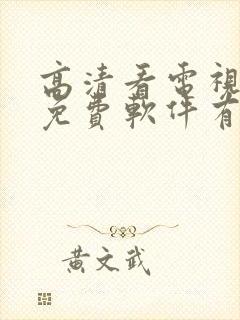 高清看電視
免費軟件有
黃文武